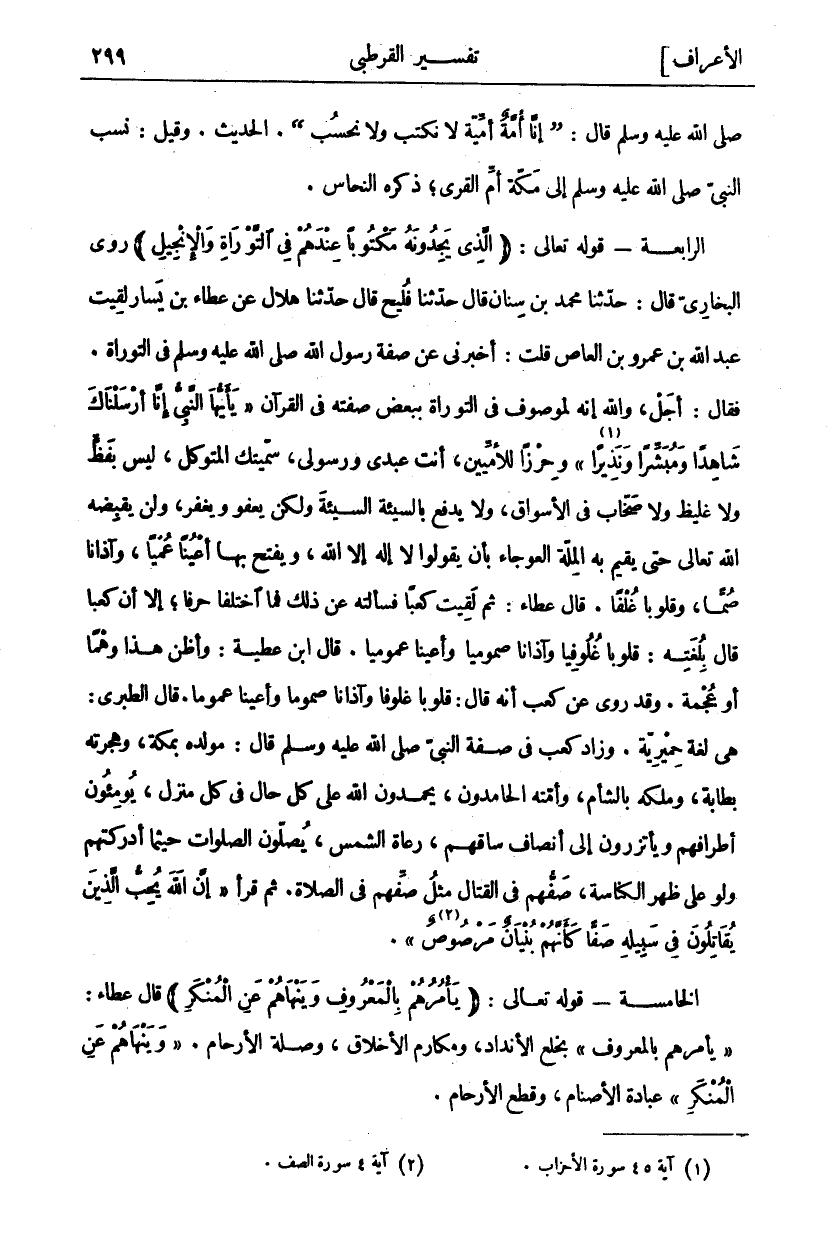 الأعراف] تفسير القرطبى ٢٩٩
صلى الله عليه وسلم قال : ” إنّا أُمَّةٌ أُمّيّة لا نكتب ولا نحسُب “ . الحديث . وقيل : نسب
النبىّ صلى الله عليه وسلم إلى مَكّة أمِّ القرى؛ ذكره النحاس .
الرابعـــة — قوله تعالى : ﴿ الَّذِى يَجِدُونَهُ مَكْتُوباً عِنْدَهُمْ فِى ٱلتَّوْرَاةِ وَالْإِنْجِيلِ ﴾ روى
البخارىّ قال : حدّثنا محمد بن سِنان قال حدّثنا فُليح قال حدّثنا هلال عن عطاء بن يَسار لقِيت
عبد الله بن عمرو بن العاص قلت : أخبرنى عن صفة رسول الله صلى الله عليه وسلم فى التوراة .
فقال : أجَلْ، والله إنه لموصوف فى التوراة ببعض صفته فى القرآن « يَأَيُّهَا النَّبِىُّ إِنَّا أَرْسَلْنَاكَ
شَاهِدًا وَمُبَشِّرًا وَنَذِيرًا (١) » وحِرْزًا للأمِّيين، أنت عبدى ورسولى، سمّيتك المتوكل، ليس بفَظٍّ
ولا غليظ ولا صَخّاب فى الأسواق، ولا يدفع بالسيئة السيئةَ ولكن يعفو ويغفر، ولن يقبِضه
الله تعالى حتى يقيم به المِلّة العوجاء بأن يقولوا لا إله إلا الله، ويفتح بهــا أعْيُنًا عُمْيًا، وآذانا
صُمًّـا، وقلوبا غُلْفًا . قال عطاء : ثم لَقِيت كعبًا فسألته عن ذلك فما ٱختلفا حرفا؛ إلا أن كعبا
قال بِلُغَتِـه : قلوبا غُلُوفِيا وآذانا صموميا وأعينا عموميا . قال ابن عطيـة : وأظن هـذا وهْمًا
أو عُجْمة . وقد روى عن كعب أنه قال: قلوبا غلوفا وآذانا صموما وأعينا عموما. قال الطبرى:
هى لغة حِمْيرِيّة . وزاد كعب فى صـفة النبىّ صلى الله عليه وسـلم قال : مولده بمكة، وهِجرته
بطابة، وملكه بالشأم، وأمّته الحامدون، يحمـدون الله على كل حال فى كل منزل، يُوضِّئُون
أطرافهم ويأتزرون إلى أنصاف ساقهـم، رعاة الشمس، يُصلّون الصلوات حيثما أدركتهم
ولو على ظهر الكناسة، صَفُّهم فى القتال مثلُ صفّهم فى الصلاة. ثم قرأ « إِنَّ اللهَ يُحِبُّ الَّذِينَ
يُقَاتِلُونَ فِى سَبِيلِهِ صَفًّا كَأَنَّهُمْ بُنْيَانٌ مَرْصُوصٌ (٢) » .
الخامســة — قوله تعـالى : ﴿ يَأْمُرُهُمْ بِالْمَعْرُوفِ وَيَنْهَاهُمْ عَنِ الْمُنْكَرِ ﴾ قال عطاء :
« يأمرهم بالمعروف » بخلع الأنداد، ومكارم الأخلاق، وصـلة الأرحام . « وَيَنْهَاهُمْ عَنِ
الْمُنْكَرِ » عبادة الأصنام، وقطع الأرحام .
(١) آية ٤٥ سورة الأحزاب . (٢) آية ٤ سورة الصف .